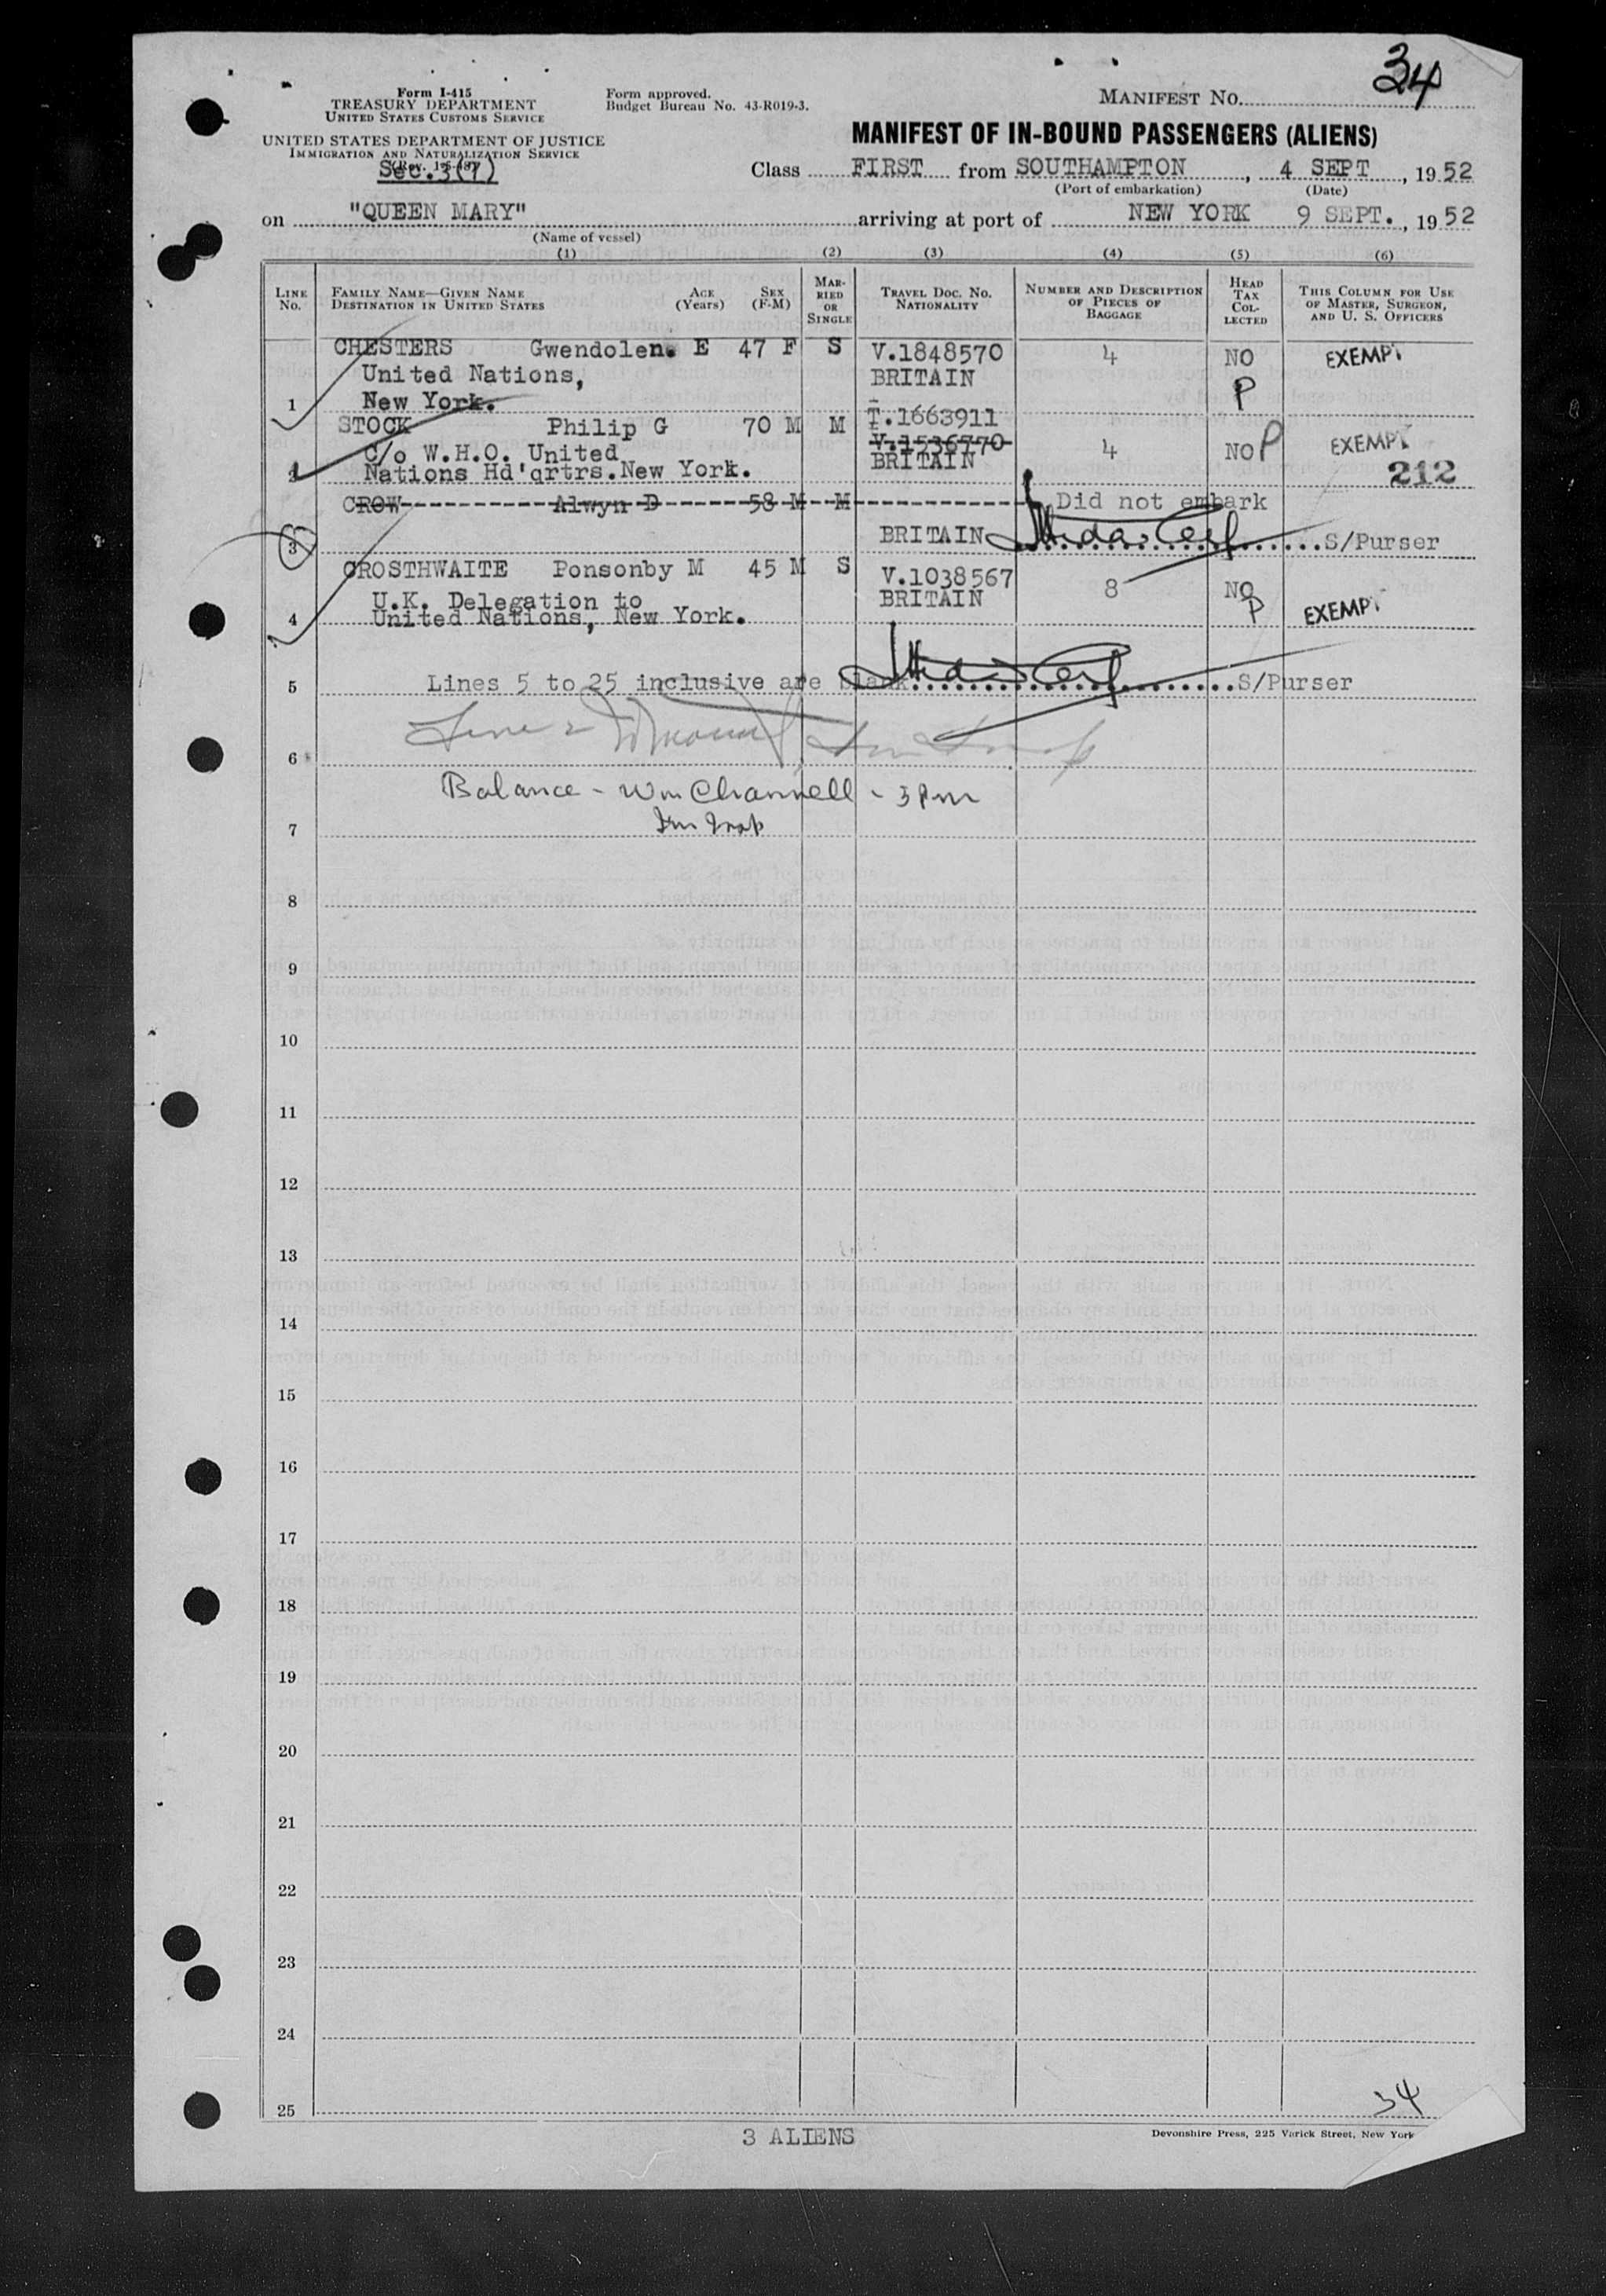 34
Form I-415
TREASURY DEPARTMENT
UNITED STATES CUSTOMS SERVICE
UNITED STATES DEPARTMENT OF JUSTICE
IMMIGRATION AND NATURALIZATION SERVICE
Sec.3(7)
Form approved.
Budget Bureau No. 43-R019-3.
MANIFEST No.
MANIFEST OF IN-BOUND PASSENGERS (ALIENS)
Class FIRST from SOUTHAMPTON, 4 SEPT, 1952
(Port of embarkation) (Date)
on "QUEEN MARY" arriving at port of NEW YORK 9 SEPT., 1952
(Name of vessel)
(1) (2) (3) (4) (5) (6)
LINE No.
FAMILY NAME—GIVEN NAME
DESTINATION IN UNITED STATES
AGE (Years)
SEX (F-M)
MARRIED OR SINGLE
TRAVEL DOC. No. NATIONALITY
NUMBER AND DESCRIPTION OF PIECES OF BAGGAGE
HEAD TAX COLLECTED
THIS COLUMN FOR USE OF MASTER, SURGEON, AND U. S. OFFICERS
CHESTERS Gwendolen. E 47 F S V.1848570 4 NO EXEMPT
United Nations, BRITAIN P
1 New York.
STOCK Philip G 70 M M T.1663911
C/o W.H.O. United V.1536770 4 NO P EXEMPT
2 Nations Hd'qrtrs.New York. BRITAIN 212
CROW Alwyn D 58 M M Did not embark
3 BRITAIN S/Purser
CROSTHWAITE Ponsonby M 45 M S V.1038567 8 NO
U.K. Delegation to BRITAIN P EXEMPT
4 United Nations, New York.
5 Lines 5 to 25 inclusive are blank S/Purser
6
Balance - Wm Channell - 3 Pm
7
8
9
10
11
12
13
14
15
16
17
18
19
20
21
22
23
24
25
34
3 ALIENS
Devonshire Press, 225 Varick Street, New York